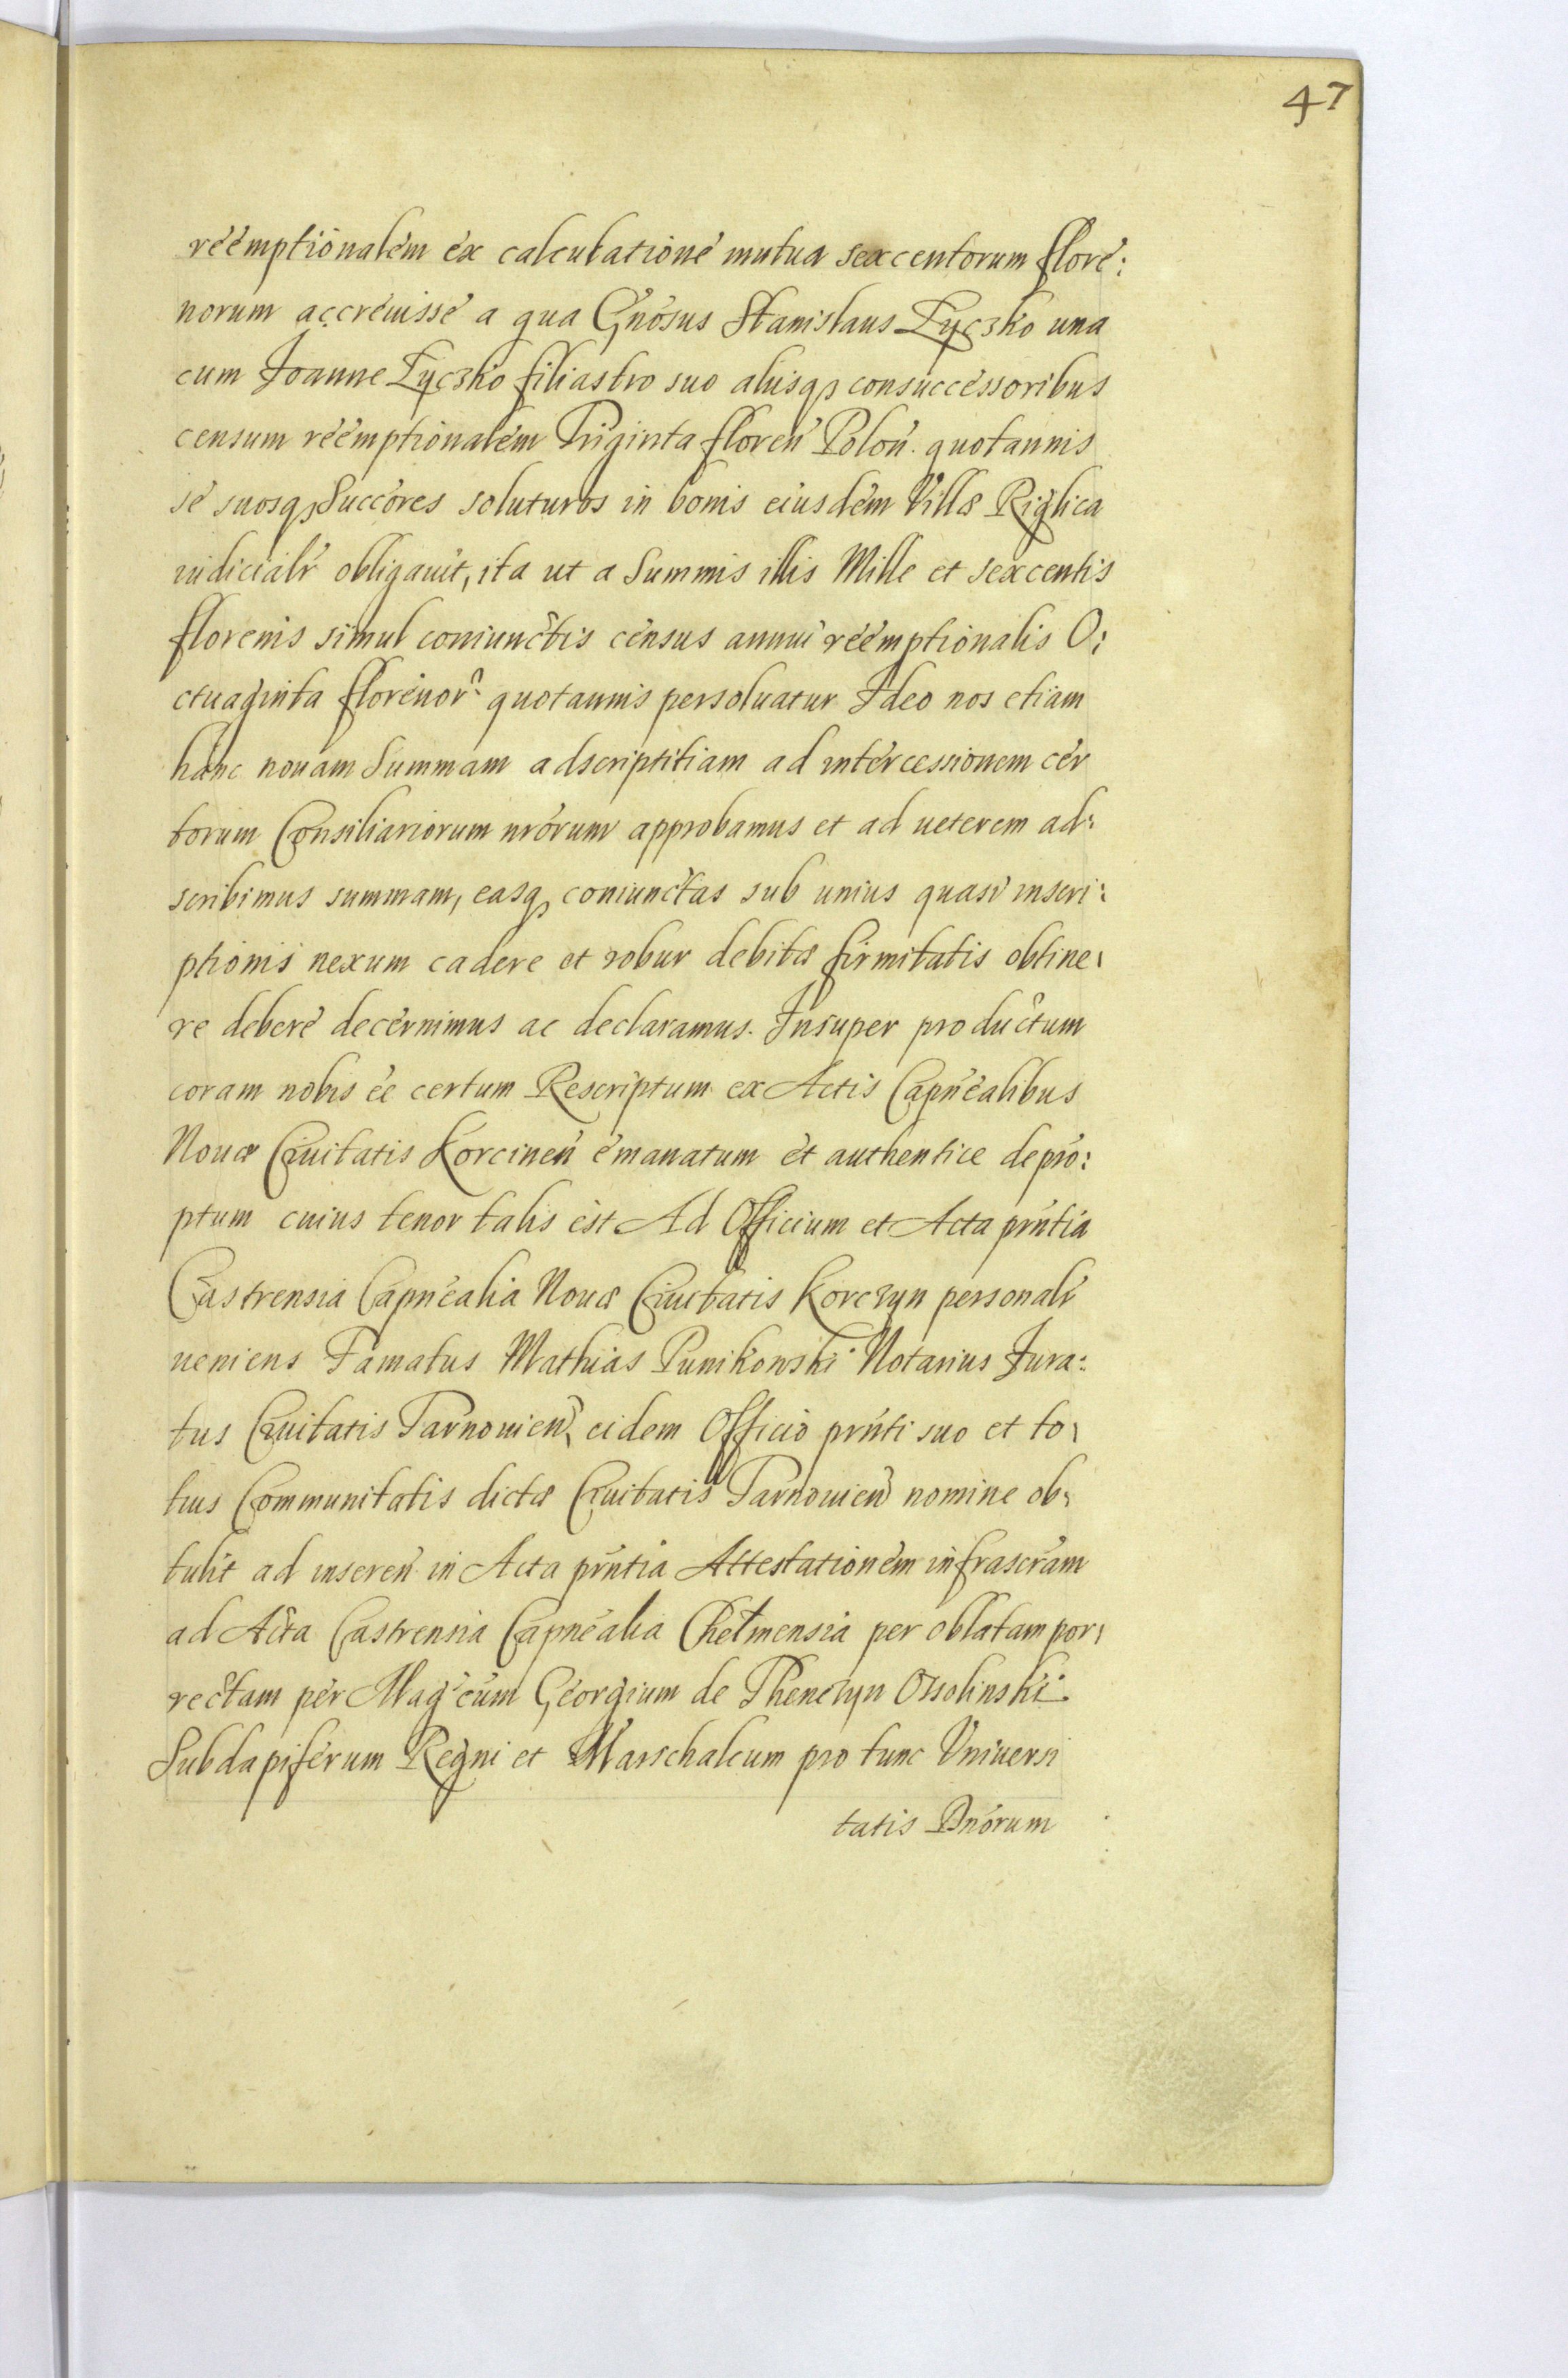 47
réémptionalém éx calculationé mutua sexcentorum floré:
norum accréuissé a qua Gnósus Stanislaus Łyczko una
cum Joanne Łyczko filiastro suo aliisq₃ consuccéssoribus
censum réémptionalém Triginta florén̄ Polon̄. quotannis
sé suosq₃ Succóres soluturos in bonis eiusdém Villæ Riglica
iudicialr̄ obligauit, ita ut a Summis illis Mille et sexcentis
florenis simul coniunctis census annui réémptionalis O:
ctuaginta florénor̄: quotannis persoluatur Ideo nos etiam
hanc nouam Summam adscriptitiam ad intércessionem cér
torum Consiliariorum nrórum approbamus et ad ueterem ad:
scribimus summam, easq₃ coniunctas sub unius quasi inscri:
ptionis nexum cadere et robur debitæ firmitatis obtine:
re deberé decérnimus ac declaramus. Insuper productum
coram nobis éé certum Rescriptum ex Actis Capnéalibus
Nouæ Ciuitatis Korcinen̄ émanatum ét authentice depró:
ptum cuius tenor talis ést Ad Officium et Acta prn̄tia
Castrensia Capnéalia Nouæ Ciuitatis Korczyn personalr̄
ueniens Famatus Mathias Punikowski Notarius Jura:
tus Ciuitatis Tarnouien̄, eidem Officio prn̄ti suo et to:
tius Communitatis dictæ Ciuitatis Tarnouien̄ nomine ob:
tulit ad inseren̄ in Acta prn̄tia Attestationém infrascr̄am
ad Acta Castrensia Capnéalia Chełmensia per oblatam por:
rectam pér Mag̓cúm Géorgium de Thenczyn Ossolinski
Subdapiférum Regni et Marschalcum pro tunc Vniuersi
tatis Dnórum